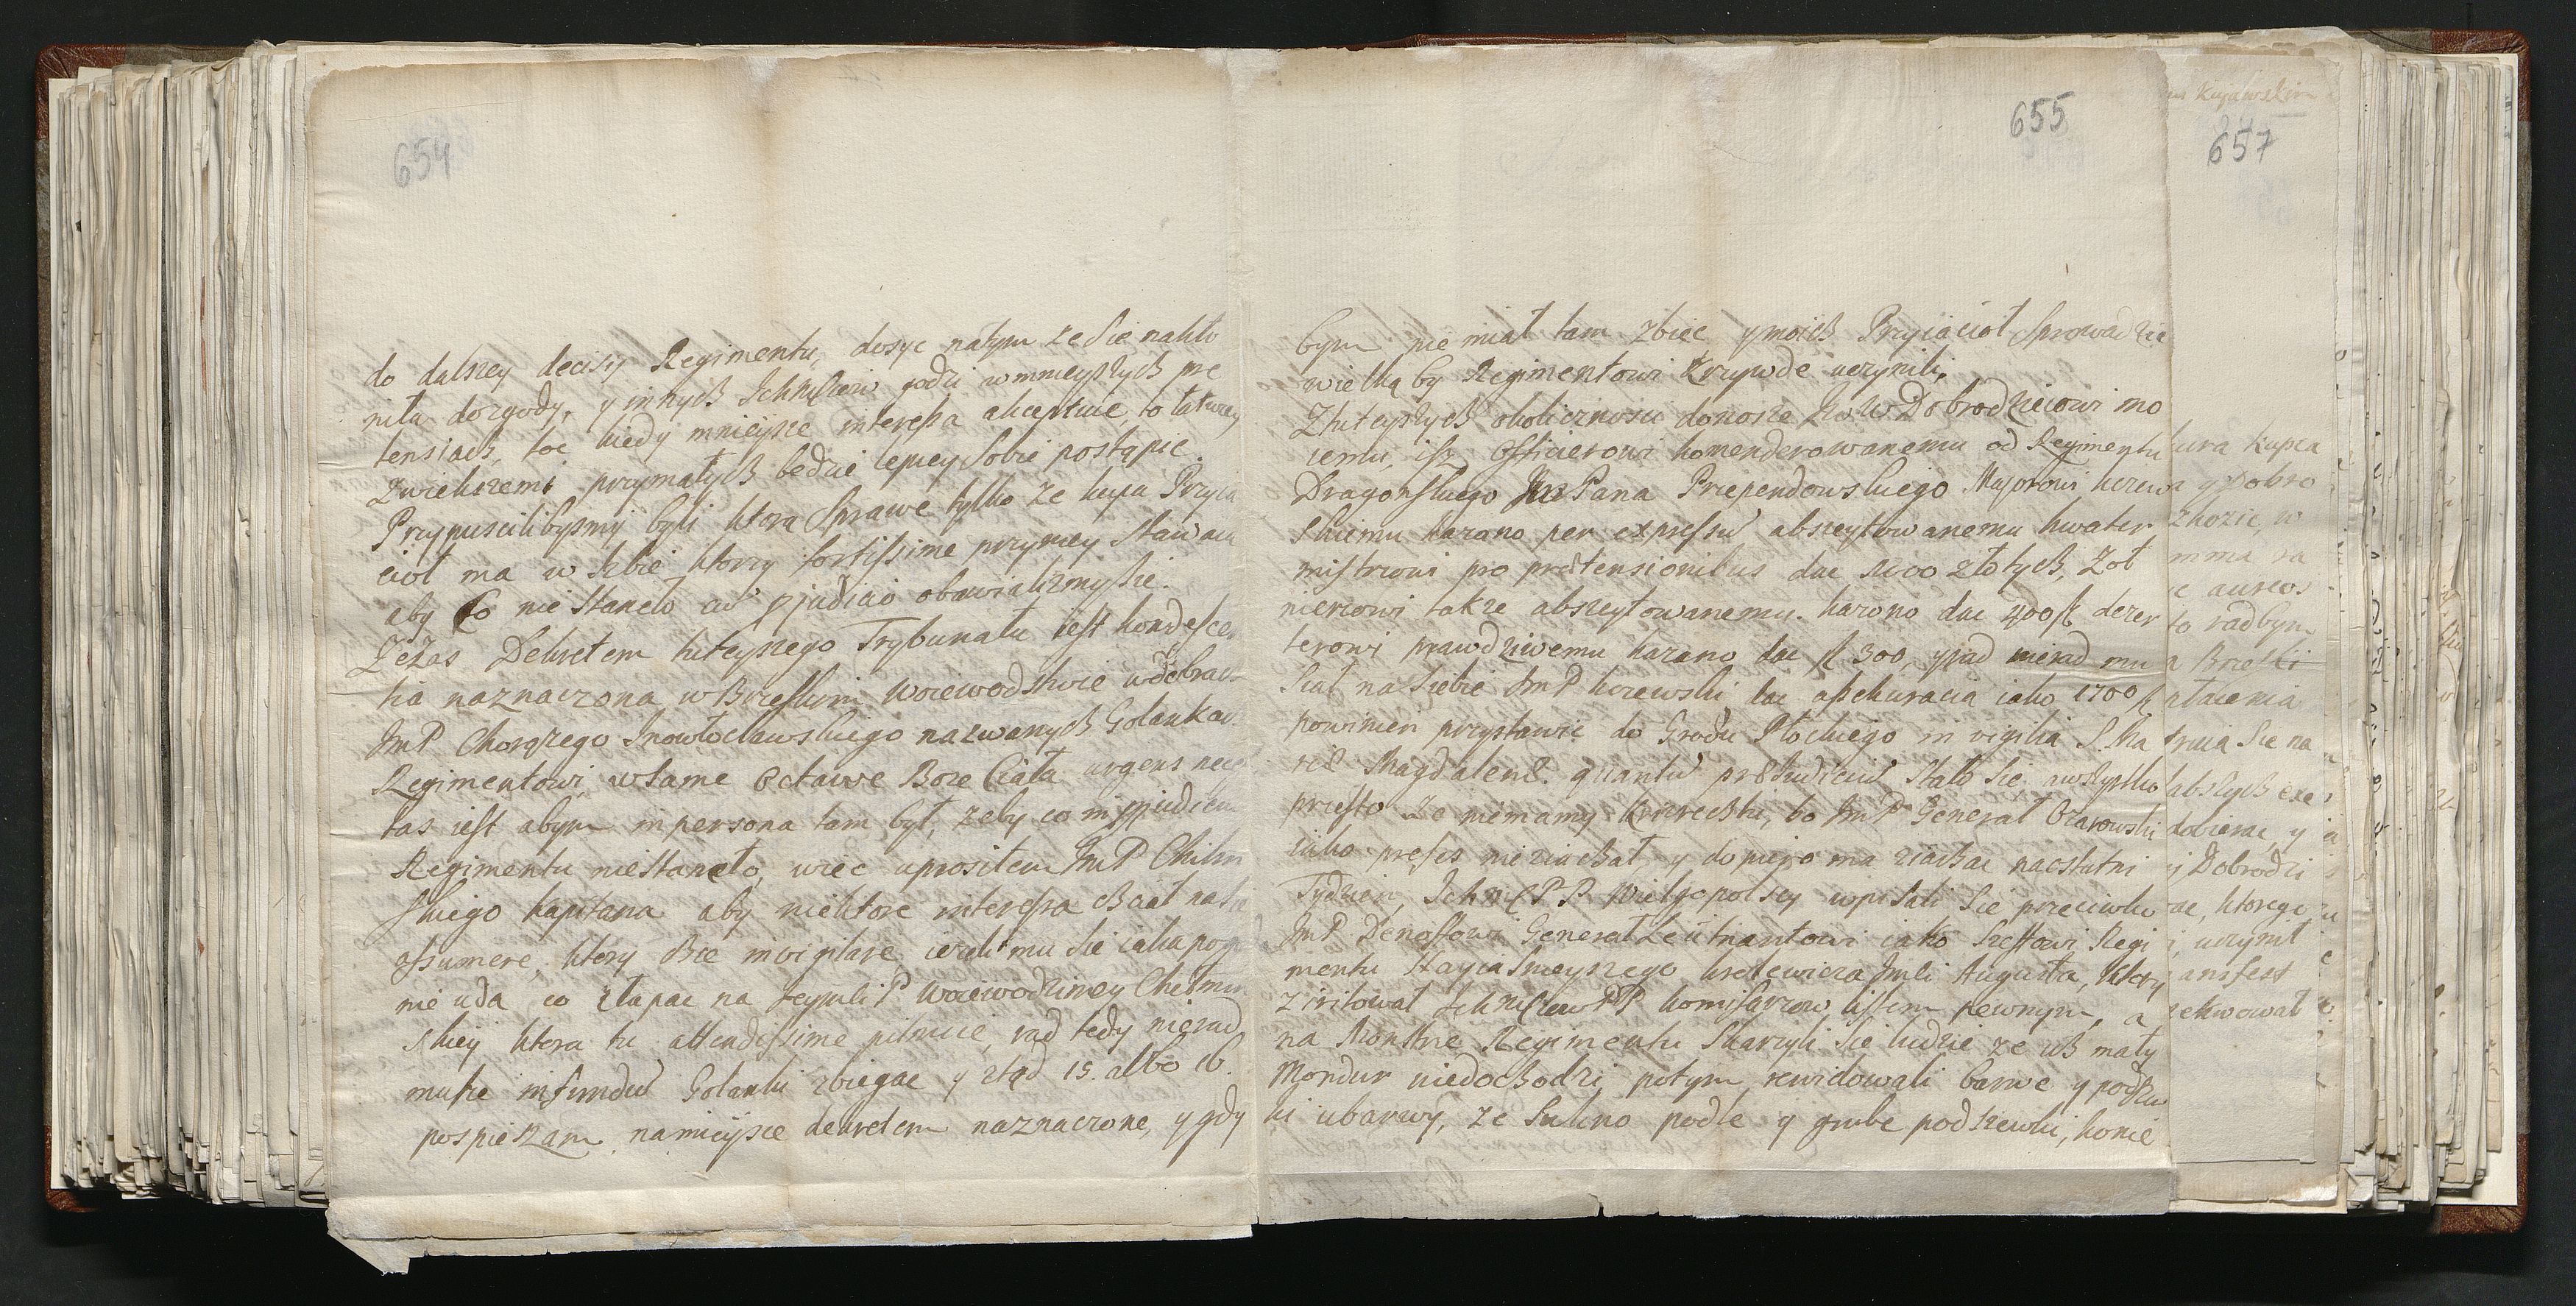 654
do dalszey decisij Regimentu, dosyc natym ze Sie nakło
niła dozgody, y innych Ichmściow godzi wmnieyszych pre
tensiach, toc kiedy mnieysze interessa akceptuie, to łatwiey
Zwiekszemi przymałych bedzie lepiey Sobie postąpic.
Przypuscilibysmy byli ktora Sprawe tylko ze kupa Przyia
cioł ma w Izbie ktorzy fortissime przyniey Stawaią
aby Co nie Staneło cū pjudicio obawializmysie.
Zezas Dekretem tuteyszego Trybunału iest kondescen
sia naznaczona w Brzeskim Woiewodstwie wdobrach
ImP Chorązego Inowłocławskiego nazwanych Golankach
Regimentowi, wsame Octawe Boze Ciała urgens nece
tas iest abym inpersona tam był, zeby co in pjudicium
Regimentu nieStaneło, wiec uprosiłem ImP Chilin
skiego kapitana aby niektore interessa chciał nasie
assumere, ktory Bde invigilare iezeli mu Sie iaka
nie uda co złapac na Jeymści P Woiewodziney Chełmin
skiey ktora tu attendissime pilnuie, rad tedy nierad
musze infundū Golanki zbiegac y ztąd 15. albo 16.
pospieszam namieysce dekretem naznaczone, y gdy
655
bym nie miał tam zbiec ymoich Przyiacioł Sprowadzic
wielką by Regimentowi Krzywde uczynili,
Ztuteyszych okolicznosci donosze JWW Dobrodzieiowi mo
iemu, isz Officierowi komenderowanemu od Regimentu
Dragonskiego JmPana Przependowskiego Majorowi krzew
skiemu kazano per expressū abszeytowanemu kwater
mistrzowi pro prætensionibus dac 1000 złotych, Zoł
nierzowi takze abszeytowanemu. kazono dac 400 fl dezer
terowi prawdziwemu kazano dac fl 300, yrad nierad mu
Siał na Siebie ImP krzewski dac assekuracia iako 1700 fl
powinien przystawic do Grodu Płockiego in vigilia S. Ma
riæ Magdalenæ. quantū præiudiciū Stało Sie awszystko
przesto ze niemamy Krieresztu, bo ImP Generał Ozarowski
iako preses nieziachał y dopiero ma ziachac naostatni
Tydzien, Ichm PP. Wielgopolscy wpisali Sie przeciwko
ImP Denoffowi Generał Leitnantowi iako Szeffowi Regi
mentu Nayiasnieyszego krolewicza Imści Augusta, ktory
Zirritował IchmsciowPP komisarzow listem pewnym, a
na Monstrze Regimentu Skarzyli Sie ludzie ze ich mały
Mondur niedochodzi, potym rewidowali barwe y podszew
ki ubarwy, ze Sukno podłe y grube podszewki, konie
657
kura kupca
y Dobro
Zbozie, w
mma ra
aureos
to radbym
Brzeski
płacenia
truia Sie na
dobierac, y
Dobrodzi
ac, ktorego
uczynił
ansfest
zekwował